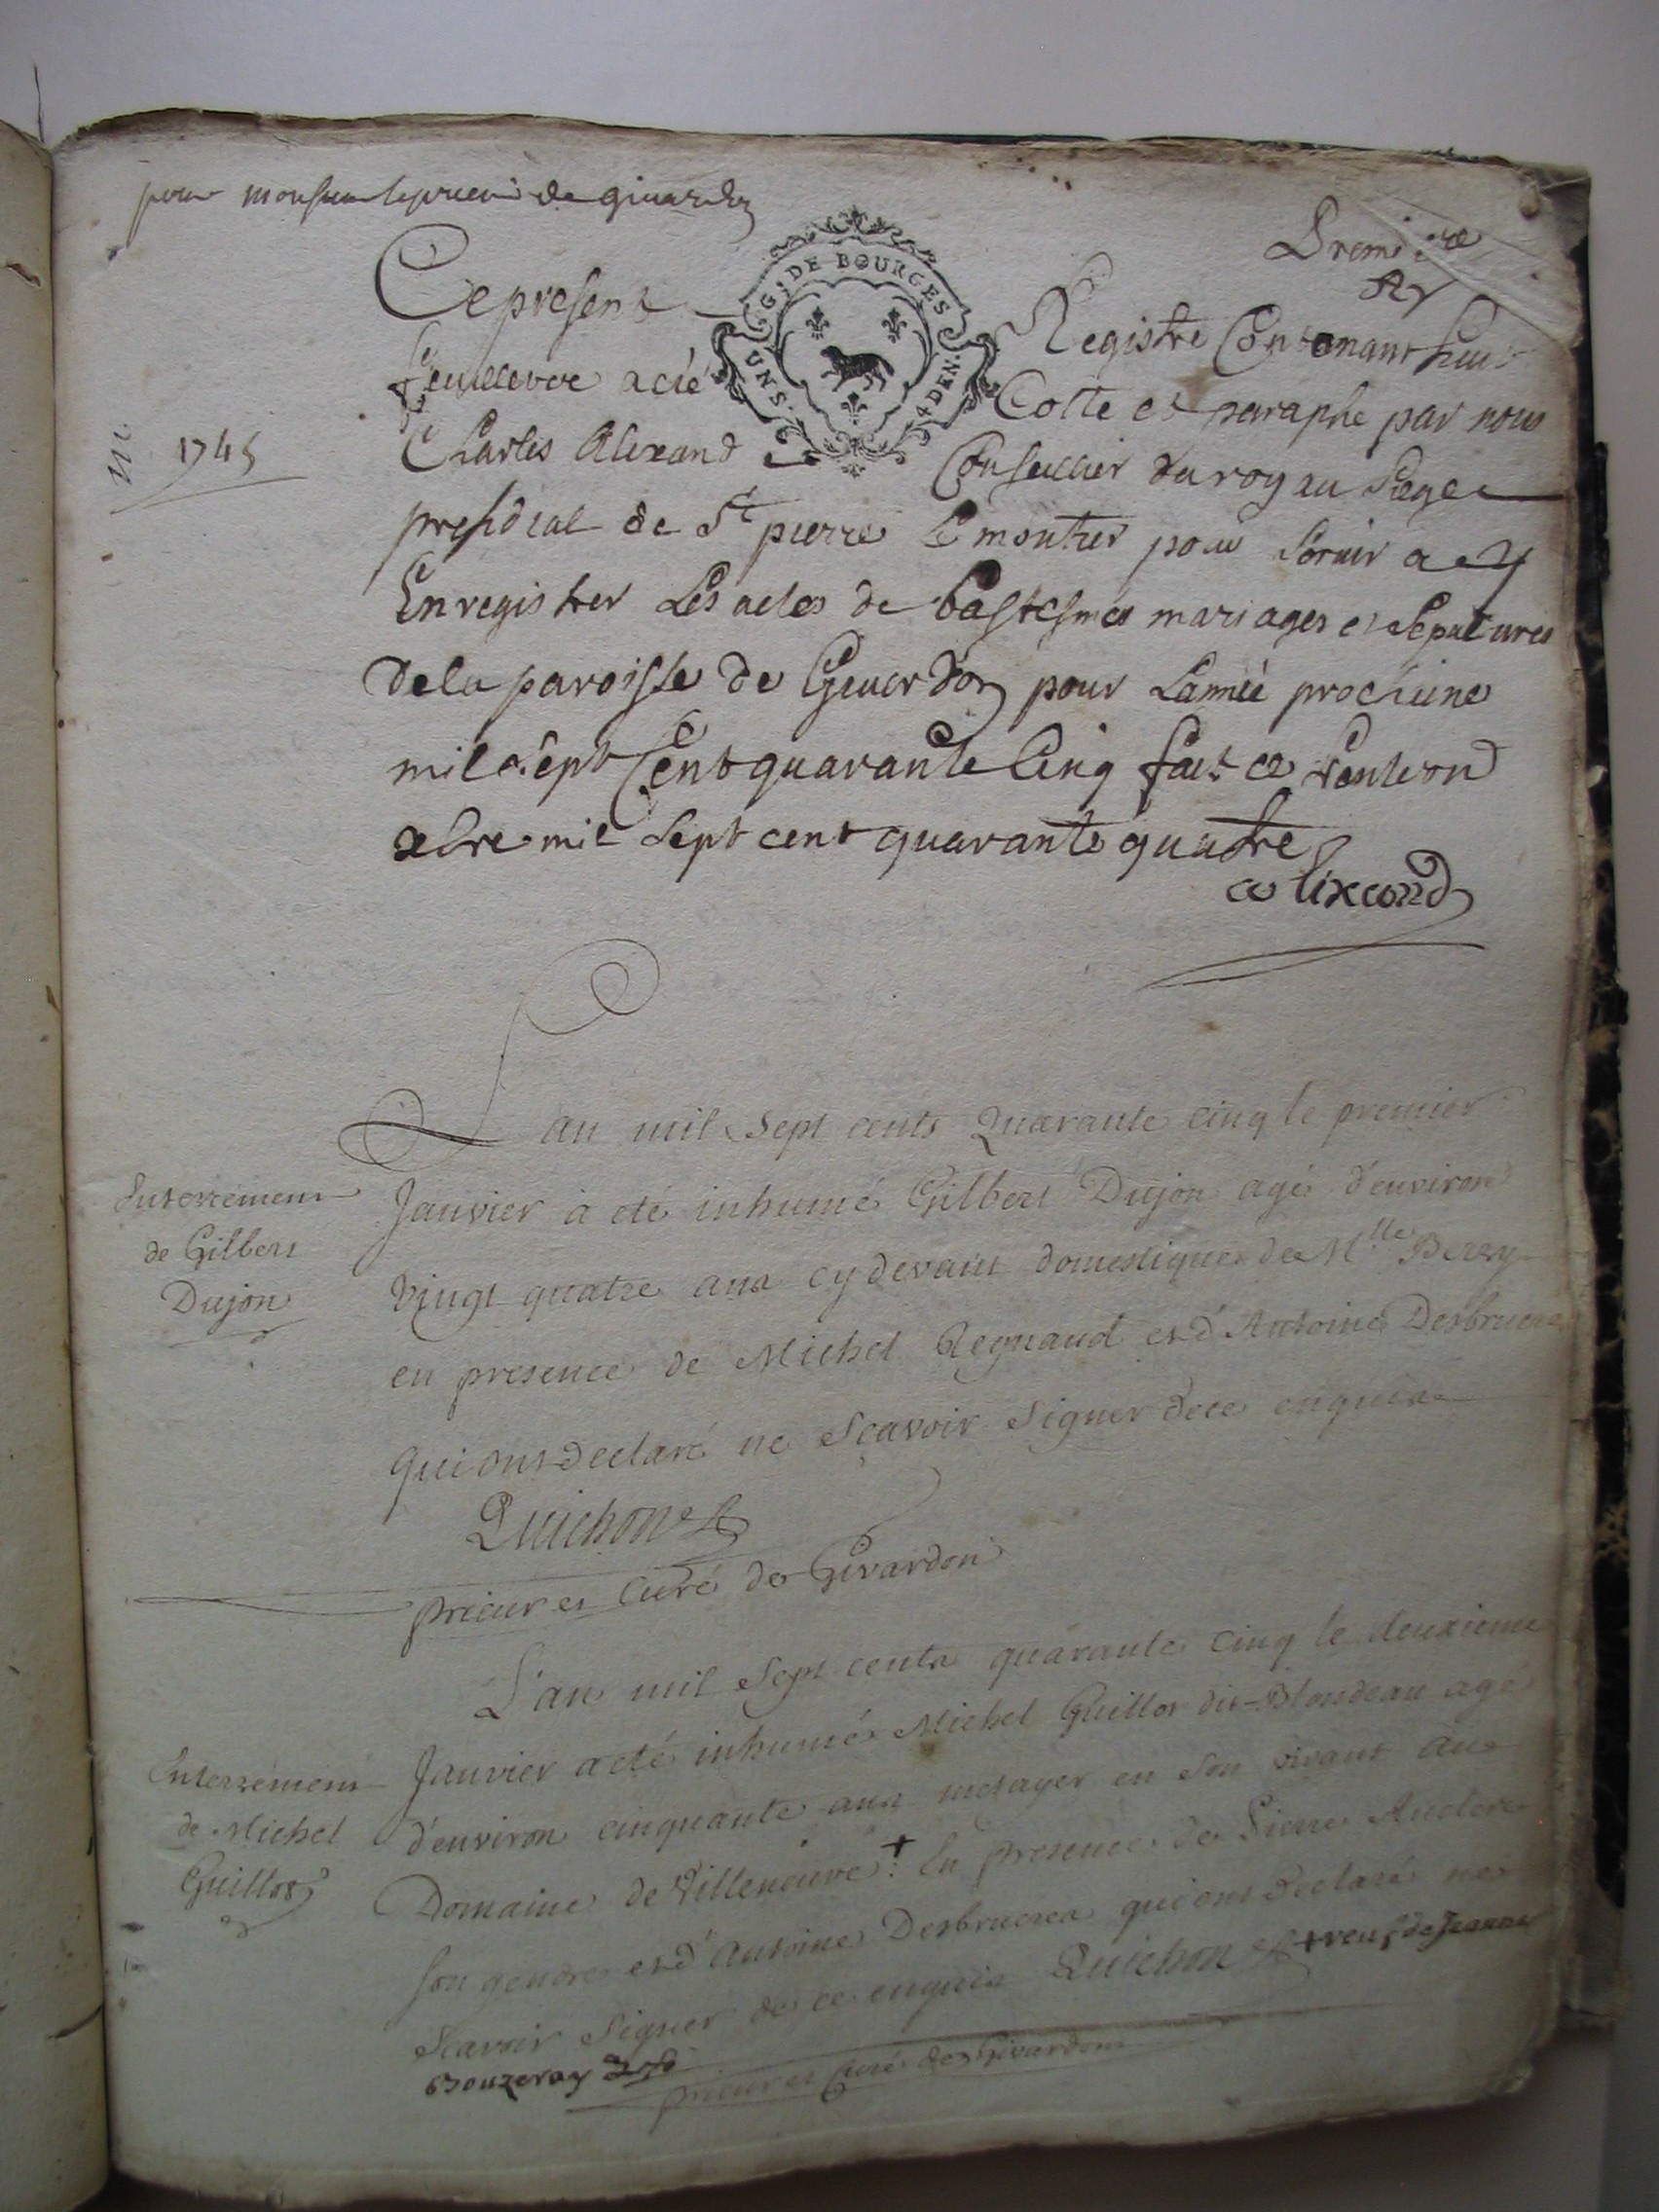 pour monsieur le prieur de givardon
Premiere
G. DE BOURGES
UN S. 4 DEN.
Ce present Registre Contenant huit
feuillets a eté Cotté et paraphé par nous
Charles Alixand Conseiller du roy au siege
presidial de St pierre le moutier pour servir a y
Enregistrer Les actes de bastesmes mariages et sepultures
de la paroisse de Givardon pour Lannée prochaine
mil sept Cent quarante Cinq fait ce
xbre mil sept cent quarante quatre
alixand
1745
L'an mil sept cents Quarante cinq le premier
Janvier à eté inhumé Gilbert Dujon agé d'environ
Vingt quatre ans cy devant domestique de Mlle Berry
en presence de Michel Regnaud et d'Antoine Desbrueres
qui ont declaré ne scavoir signer de ce enquis
Enterrement
de Gilbert
Dujon
Quichon
prieur et Curé de Givardon
L'an mil sept cents quarante cinq le deuxieme
Janvier a eté inhumé Michel Guillot dit Blondeau agé
d'environ cinquante ans metayer en son vivant au
Domaine de Villeneuve + En presence de Pierre Auclerc
son gendre et d'Antoine Desbrueres qui ont declaré ne
Scavoir signer de ce enquis Quichon + veuf de Jeanne
Bouzeray
prieur et Curé de Givardon
Enterrement
de Michel
Guillot